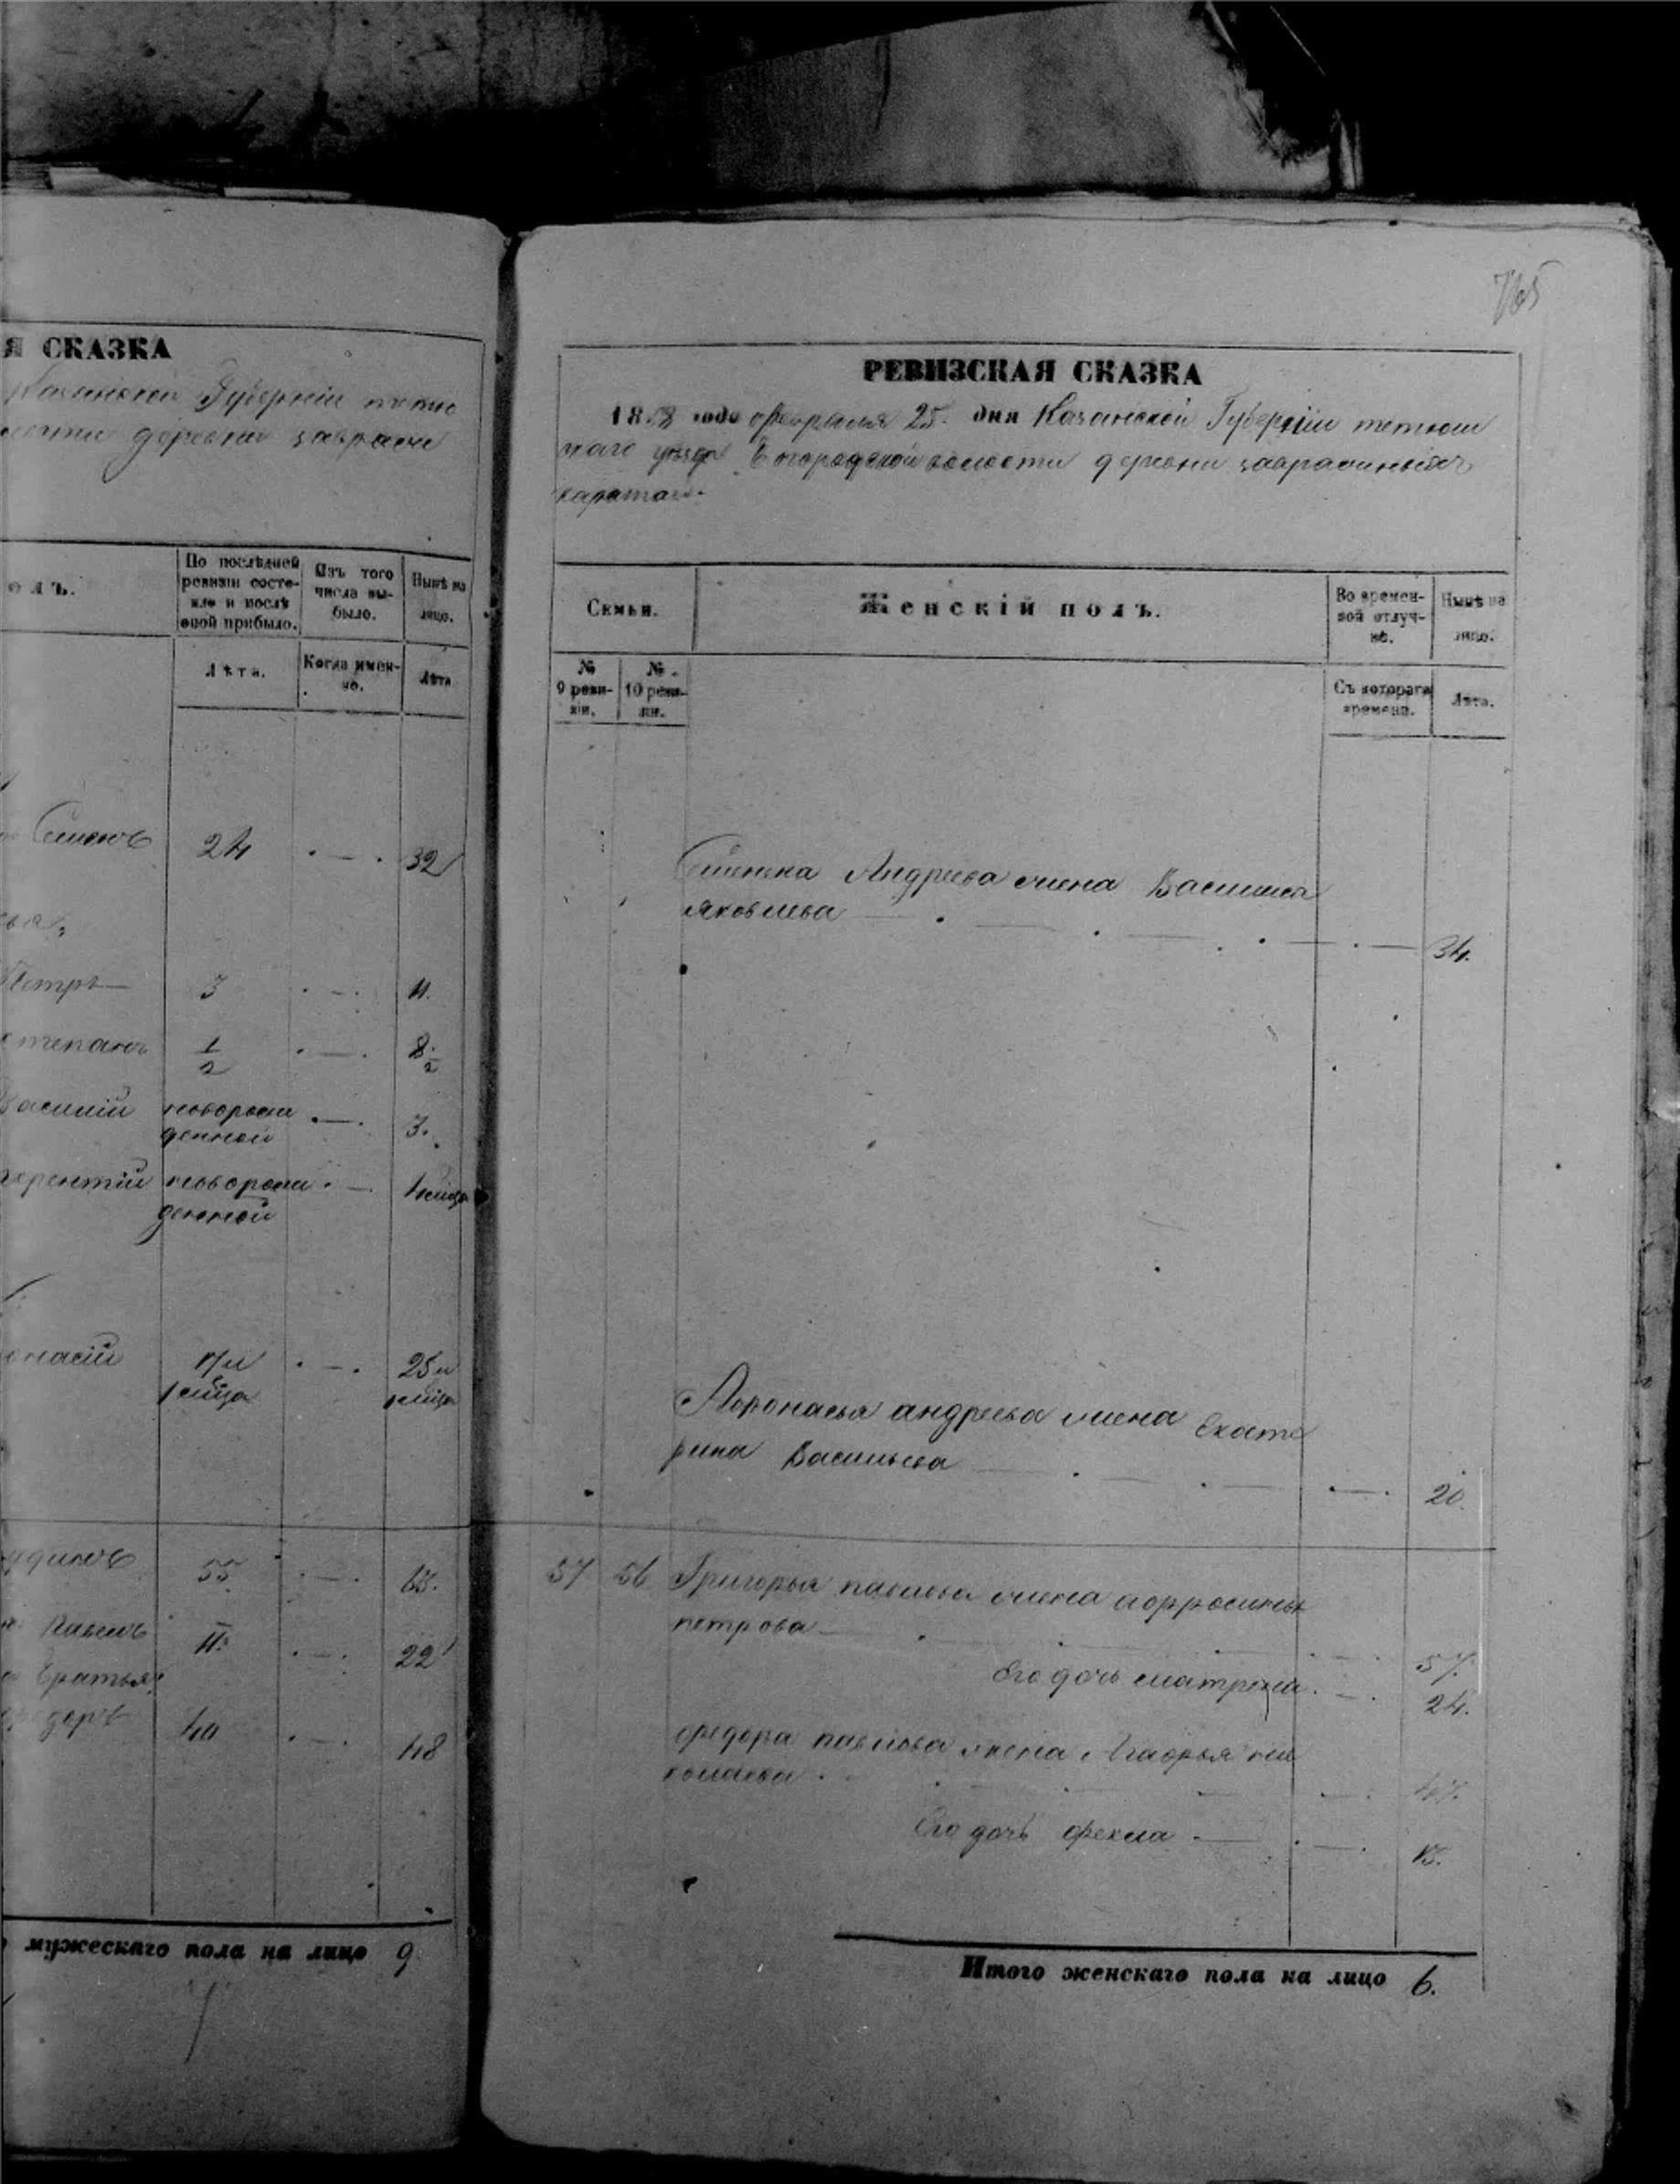 Я СКАЗКА
Казанской Губерніи тетю
деревни заврази
олъ.
По послѣдней ревизіи состо-
яло и послѣ
оной прибыло.
Изъ того
числа вы-
было.
Нынѣ на
лицо.
Лѣта.
Когда имен-
но.
Лѣта
Семенъ 24 32
Петръ 3 11.
степанъ 1/2 8 1/2
Василій новорож
денной 3.
терентій новорож
денной
онасій 17 и 25 и
55 63.
Павелъ 22
братья:
едоръ 40 48
мужескаго пола на лицо 9
765
РЕВИЗСКАЯ СКАЗКА
1858 года февраля 25. дня Казанской Губерніи тетюш
скаго уезда Богородской волости деревни завразиныхъ
каратай.
Семьи.
Женскій полъ.
Во времен-
ной отлуч-
кѣ.
Нынѣ на
лицо.
№
9 реви-
зіи.
№
10 реви-
зіи.
Съ котораго
времени.
Лѣта.
Семена Андреева жена Василиса
яковлева 34.
Афонасья андреева жена Екате
рина Васильева 20.
57 56 Григорья павлова жена аффросинья
петрова 57.
Его дочь матрена 24.
федора павлова жена Агафья ни
колаева 47.
Его дочь фекла 15.
Итого женскаго пола на лицо 6.